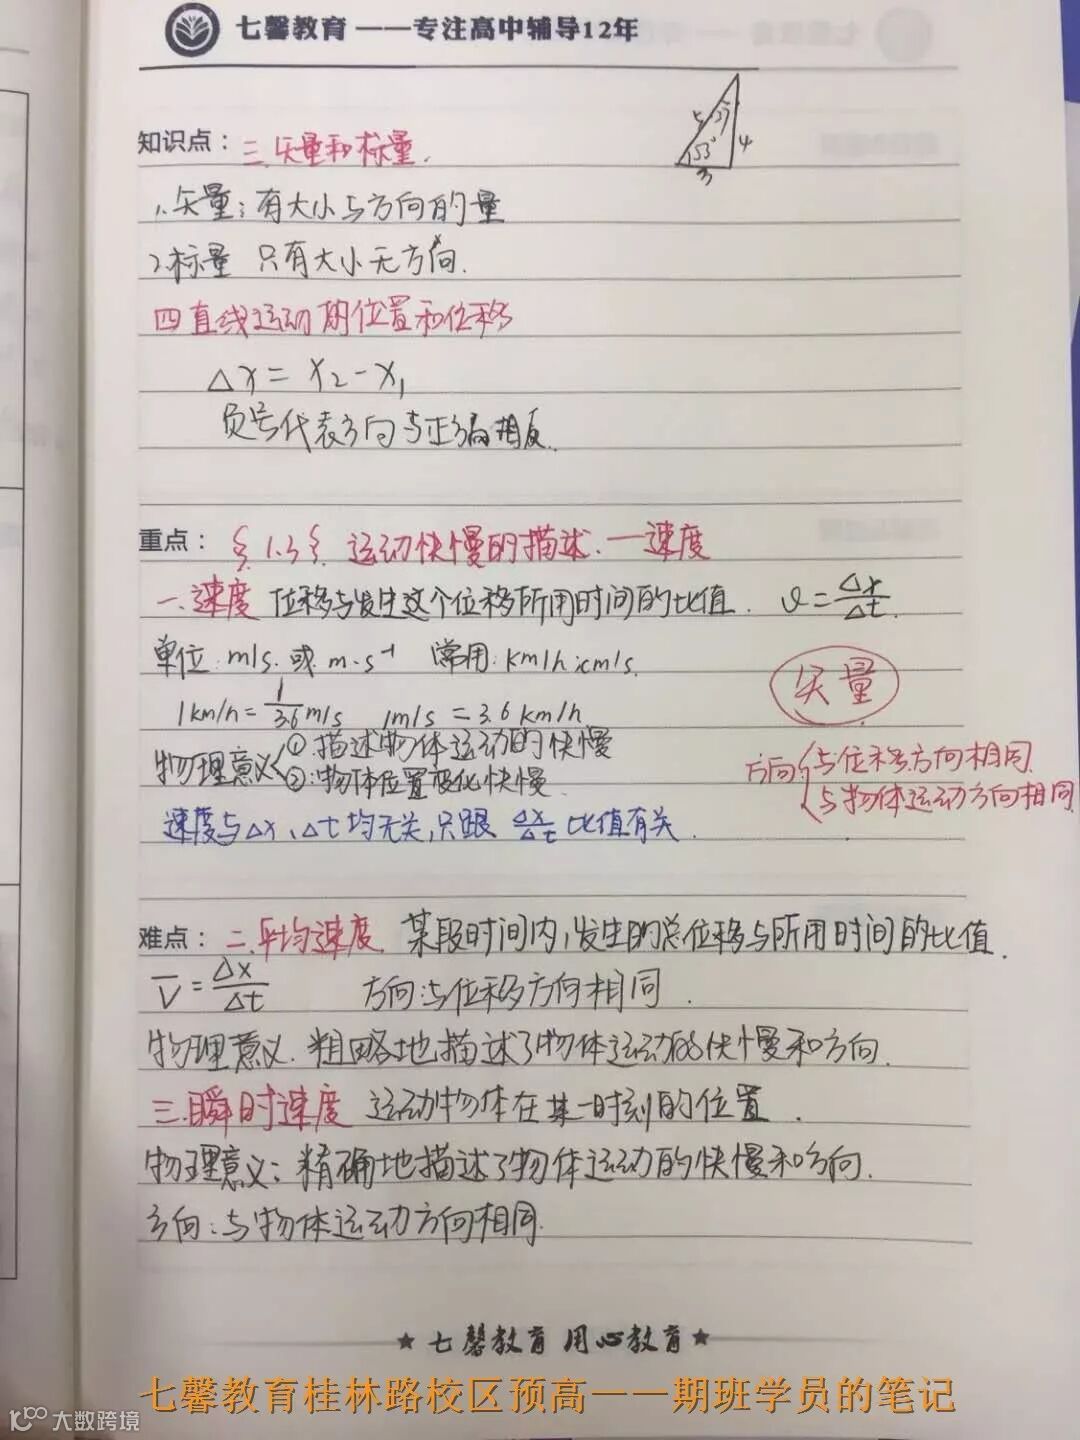 七馨教育——专注高中辅导12年
知识点：三.矢量和标量.
5 37° 4
53°
3
1.矢量：有大小与方向的量
2.标量 只有大小无方向.
四直线运动的位置和位移
△x = x₂-x₁
负号代表方向与正方向相反.
重点：§1.3§.运动快慢的描述.一速度
一.速度 位移与发生这个位移所用时间的比值. v=△x/△t.
单位:m/s.或 m·s⁻¹ 常用:km/h;cm/s.
矢量
1km/h=1/3.6m/s 1m/s=3.6km/h
物理意义 ①.描述物体运动的快慢
②:物体位置变化快慢.
方向 与位移方向相同.
与物体运动方向相同.
速度与△x、△t均无关,只跟 △x/△t 比值有关.
难点：二.平均速度. 某段时间内,发生的总位移与所用时间的比值.
V̅=△x/△t 方向:与位移方向相同.
物理意义.粗略地描述了物体运动的快慢和方向.
三.瞬时速度 运动物体在某一时刻的位置.
物理意义:精确地描述了物体运动的快慢和方向.
方向:与物体运动方向相同.
★七馨教育 用心教育★
七馨教育桂林路校区预高——期班学员的笔记
大数跨境